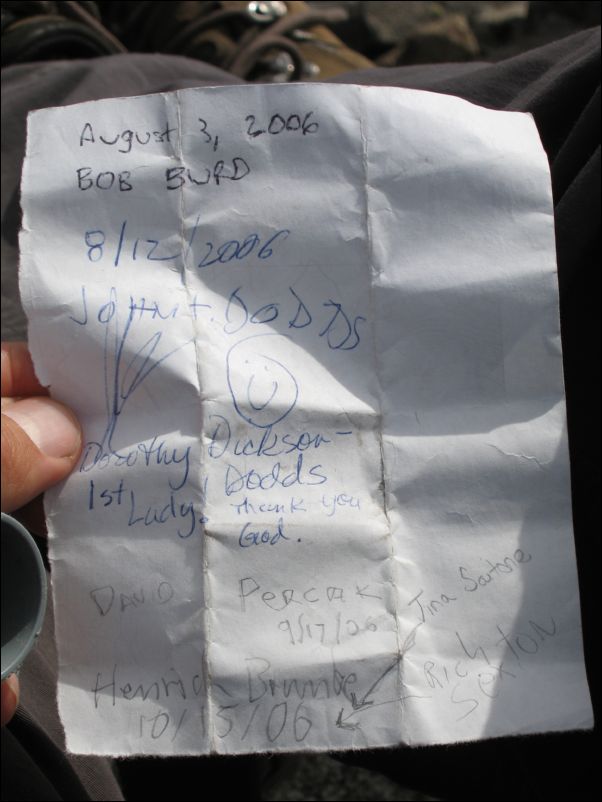 August 3, 2006
BOB BURD
8/12/2006
JOHN T. DODDS
Dorothy Dickson-
Dodds
1st Lady! Thank you
God.
DAVID PERCAK
9/17/06
Tina Sartore
RICH
SEXTON
Henrich
10/15/06